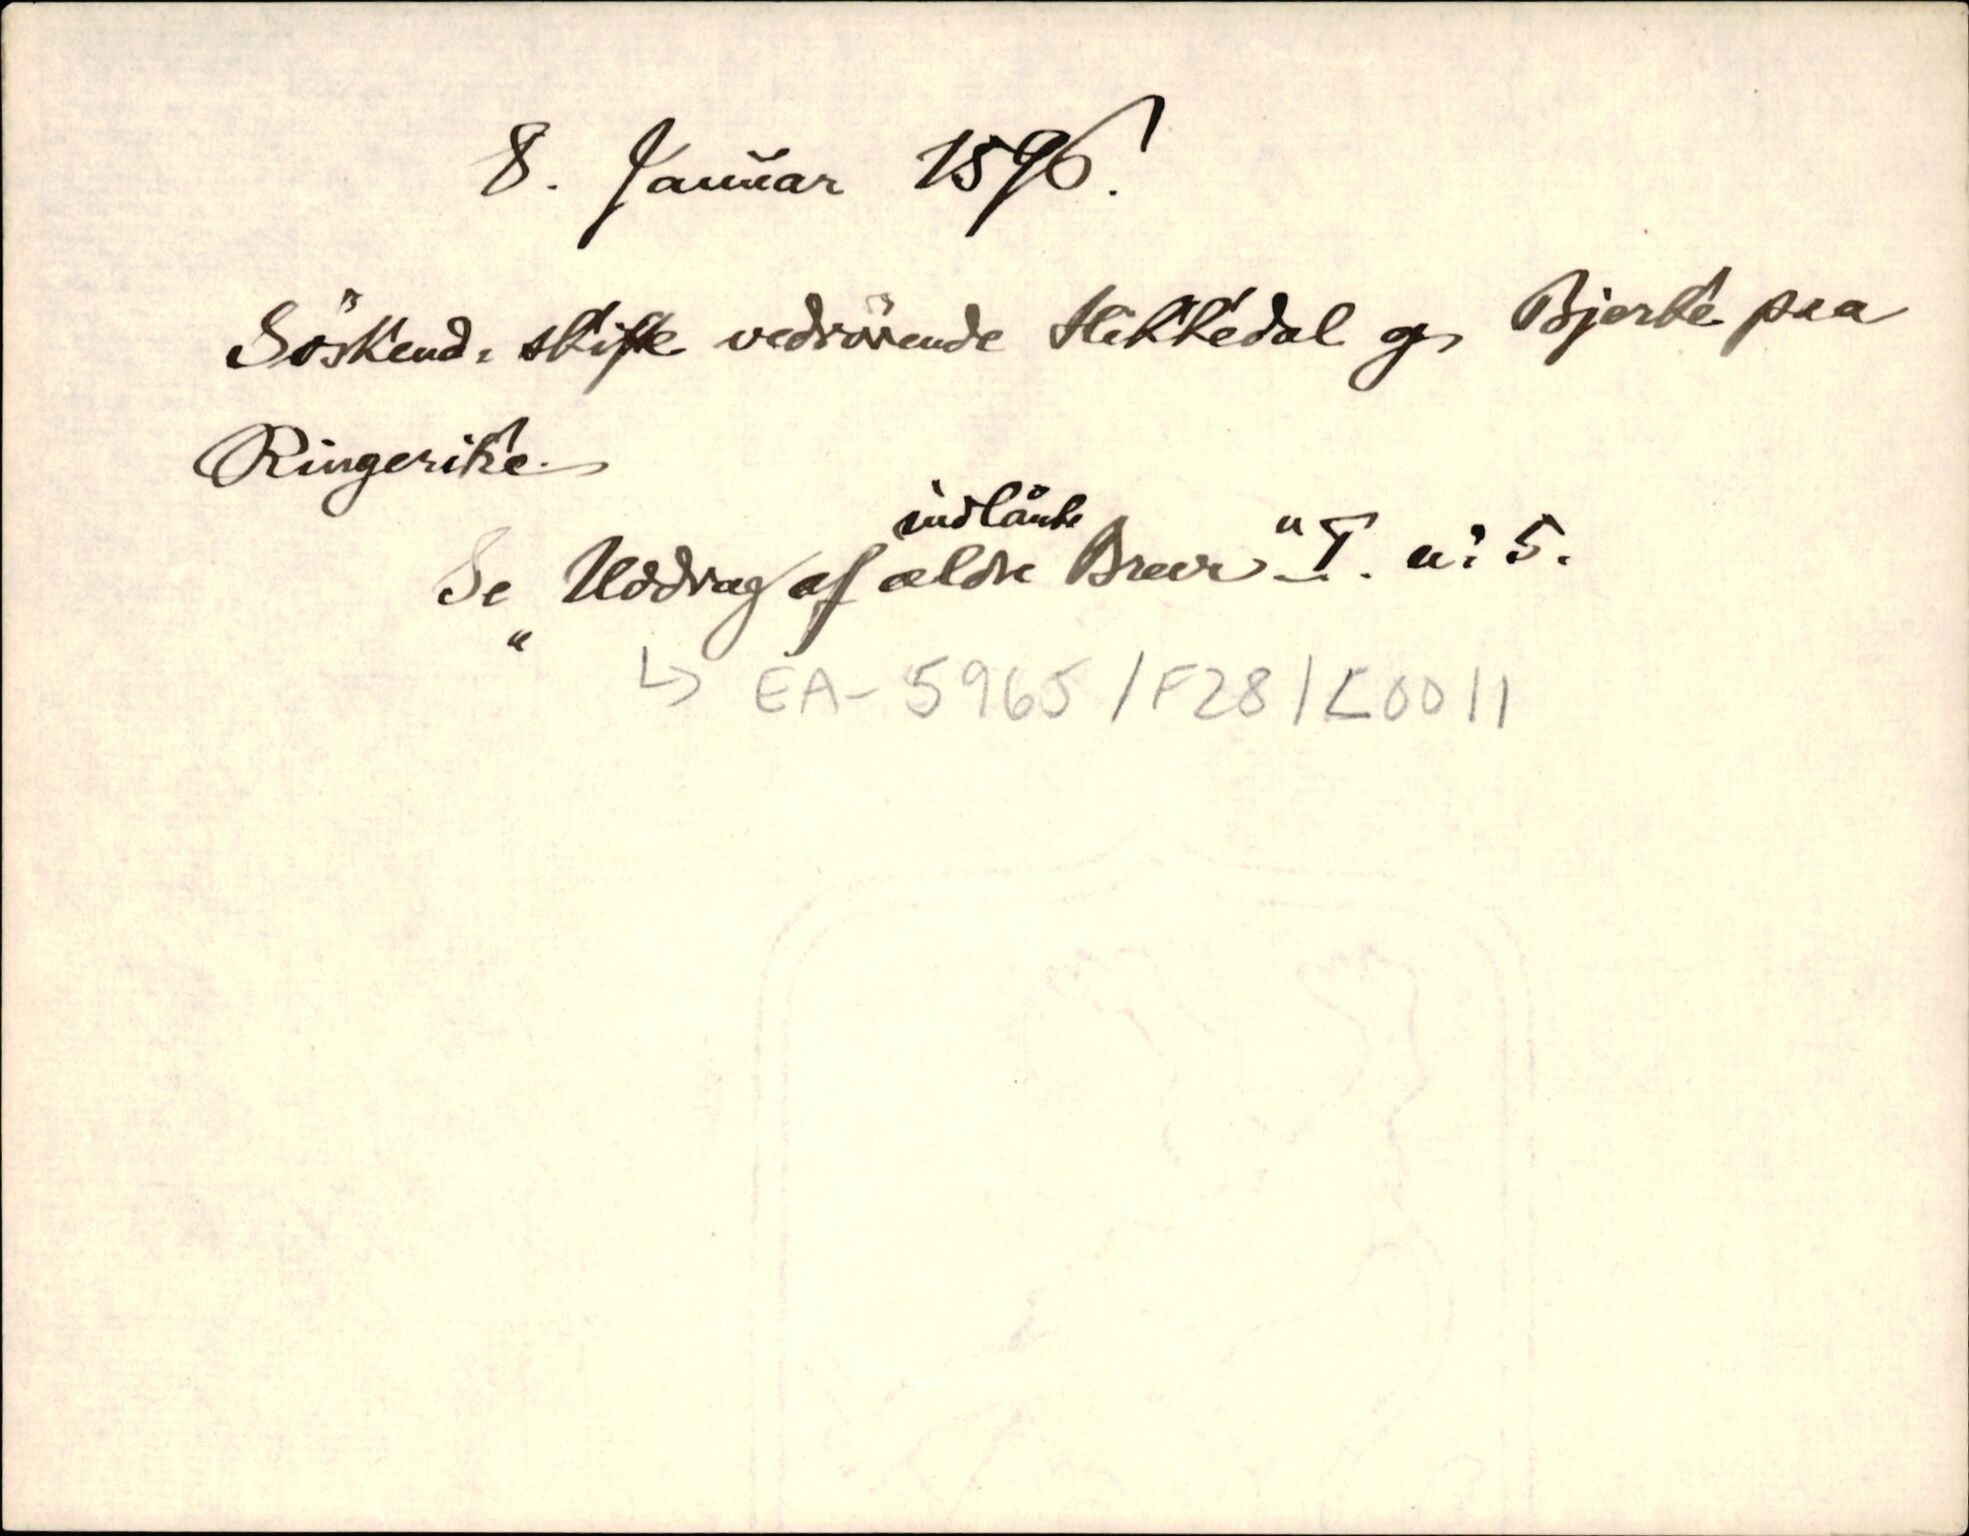 8. Januar 1596.
Söskend: skifte vedrörende Hekkedal og Bjerke paa
Ringerike.
indlånte
Se „Uddrag af ældre Breve" I. n: 5.
↳ EA-5965/F28/L0011